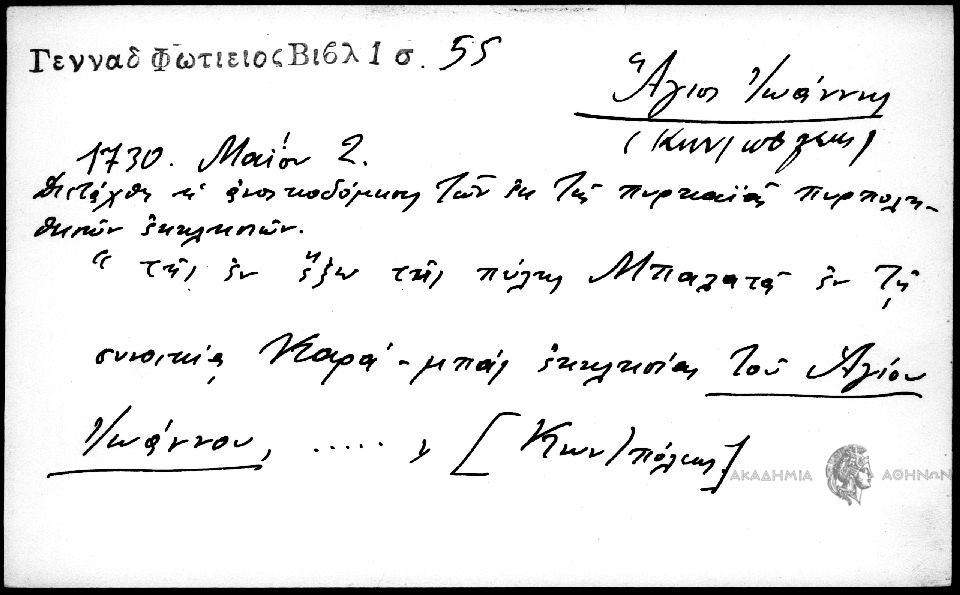 Γενναδ Φωτιειος Βιβλ 1 σ. 55
Ἅγιος Ἰωάννης
(Κων/πόλεως)
1730. Μαΐου 2.
Διετάχθη ἡ ἀνοικοδόμησις τῶν ἐκ τῆς πυρκαϊᾶς πυρπολη-
θεισῶν ἐκκλησιῶν.
“ τῆς ἐν ἔξω τῆς πύλης Μπαλατᾶ ἐν τῇ
συνοικίᾳ Καρά-μπάς ἐκκλησίας τοῦ Ἁγίου
Ἰωάννου, ..... , [Κων/πόλεως]
ΑΚΑΔΗΜΙΑ ΑΘΗΝΩΝ